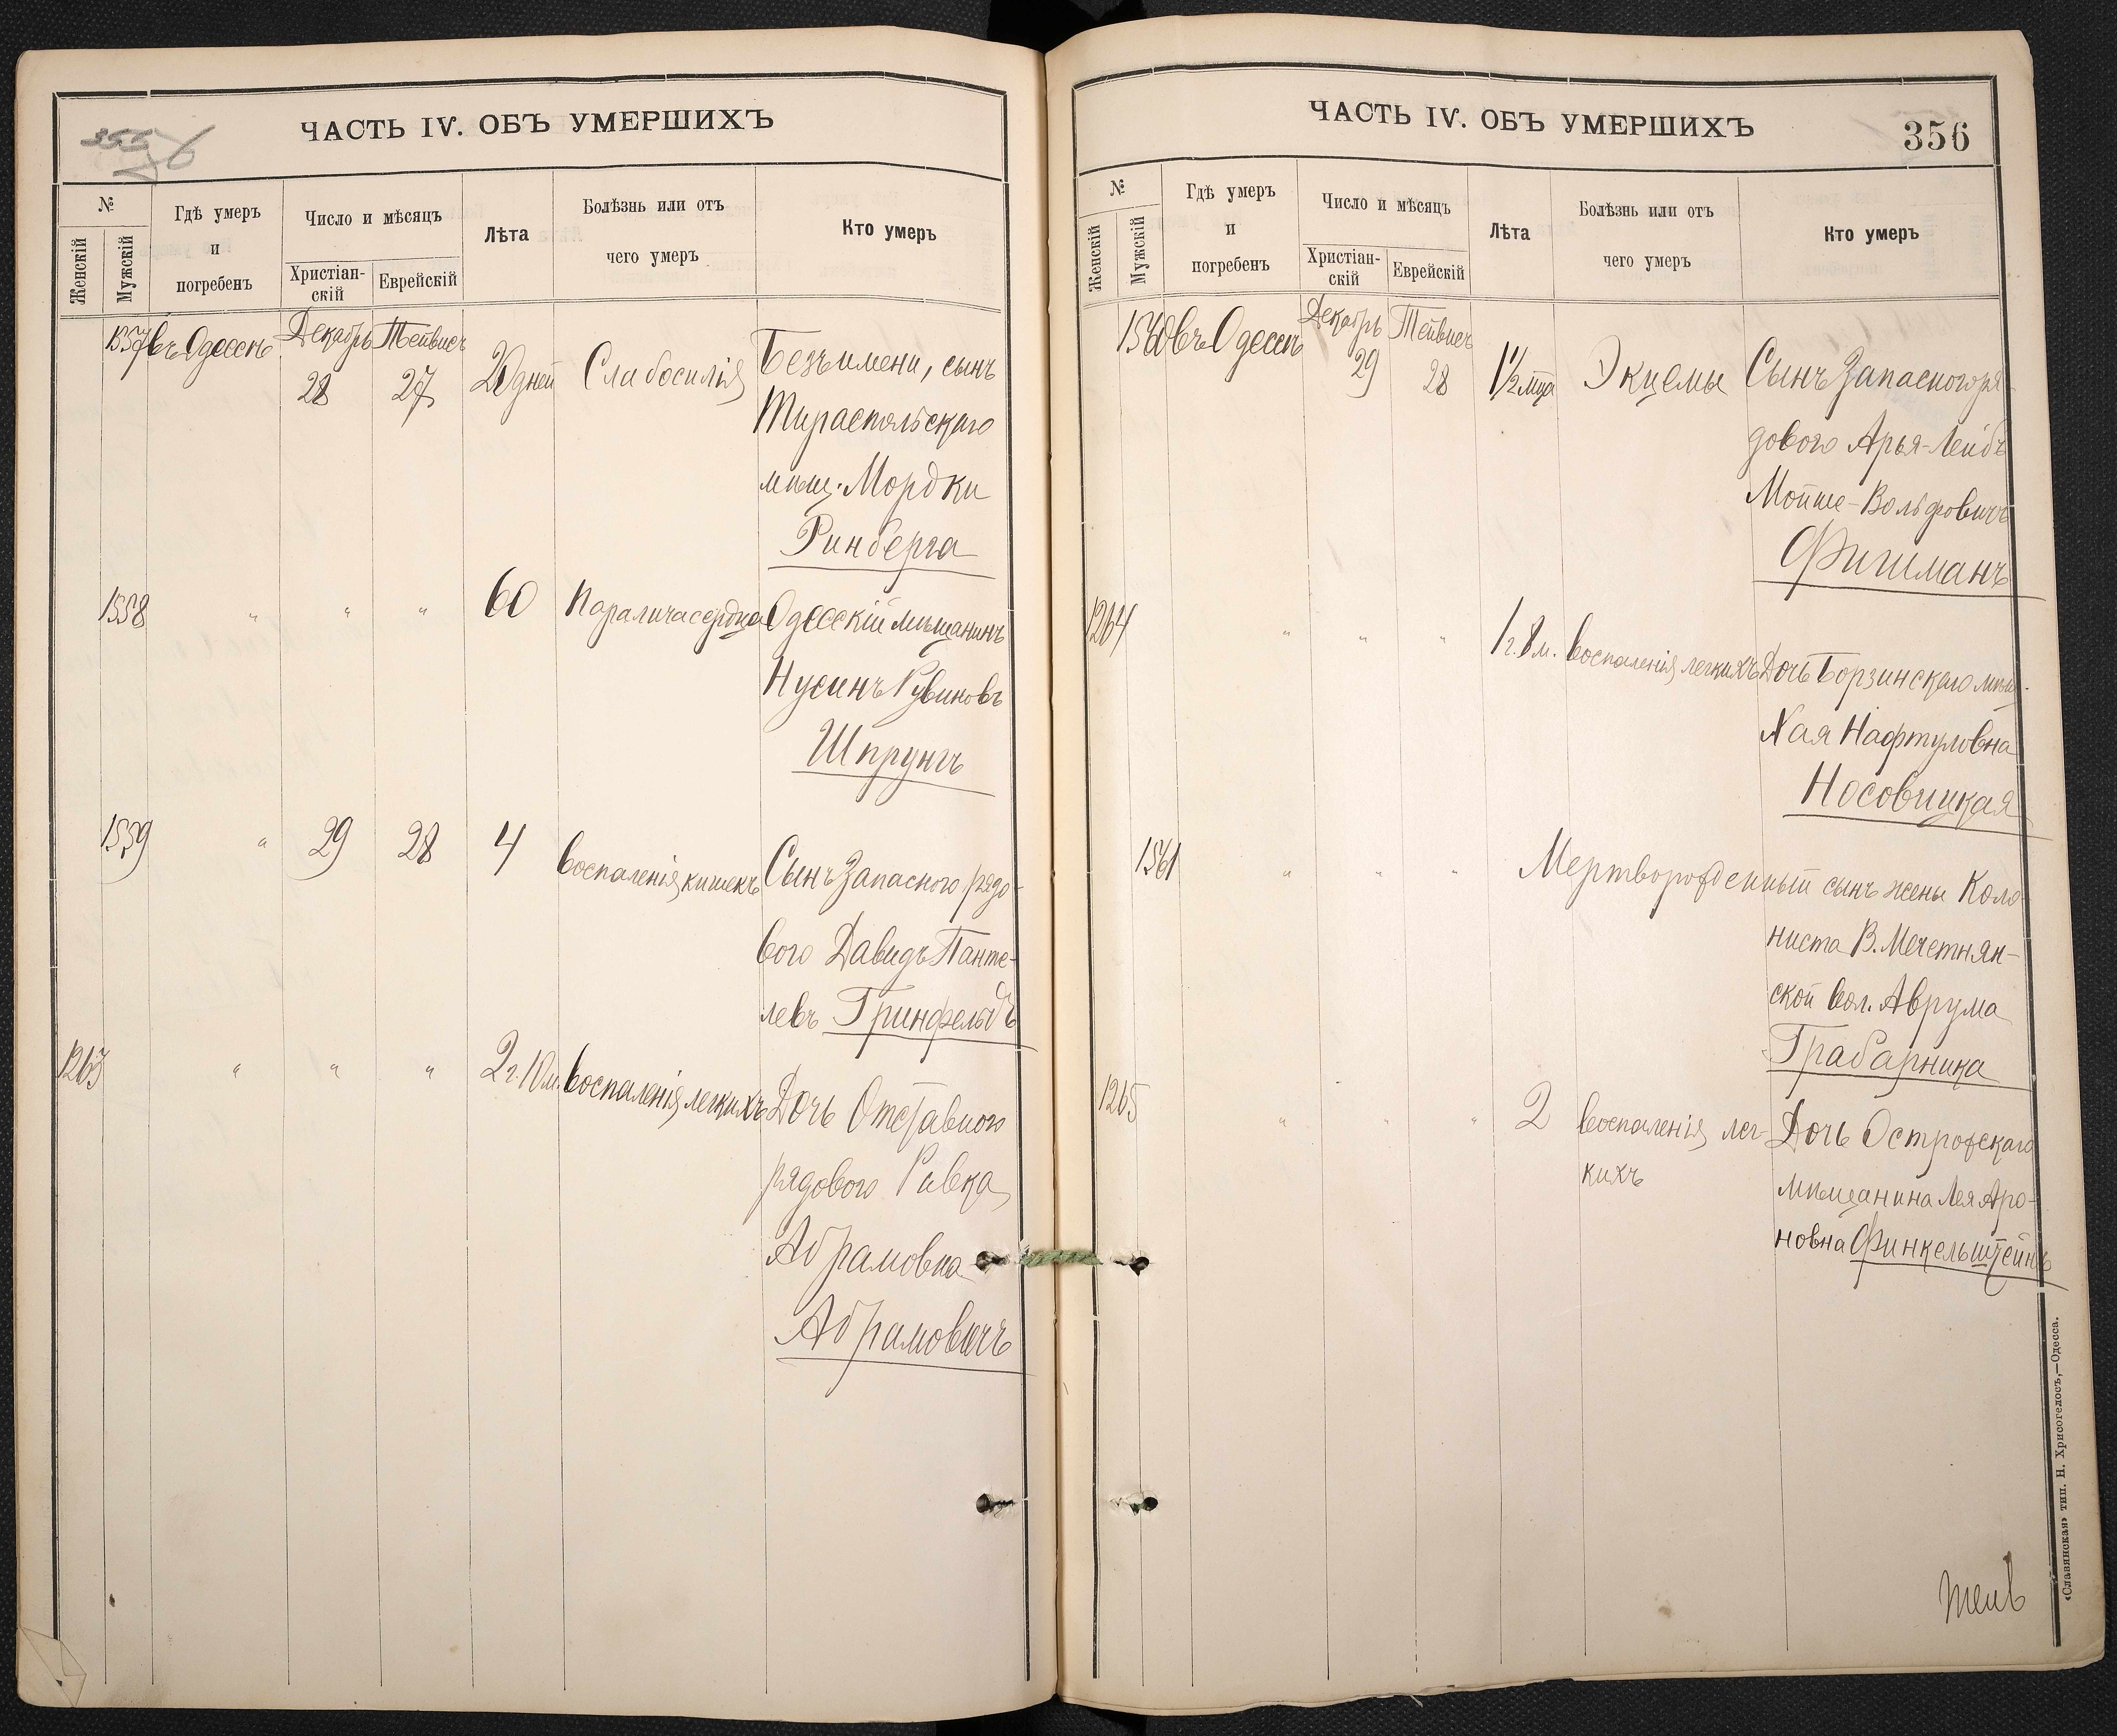 ЧАСТЬ IV. ОБЪ УМЕРШИХЪ
№
Женскій
Мужскій
Гдѣ умеръ
и
погребенъ
Число и мѣсяцъ
Христіан-
скій
Еврейскій
Лѣта
Болѣзнь или отъ
чего умеръ
Кто умеръ
1557 въ Одессѣ Декабрь Тейвисъ
28 27 20 дней Слабосилія Безъ имени, сынъ
Тираспольскаго
мѣщ. Мордки
Ринберга
1558 " " " 60 Паралича сердца Одесскій мѣщанинъ
Нусинъ Рувиновъ
Шпрунгъ
1559 " 29 28 4 воспаленія кишекъ Сынъ Запасного рядо-
вого Давидъ Панте-
левъ Гринфельдъ
1263 " " " 2 г. 10 м. воспаленія легкихъ Дочь Отставного
рядового Ривка
Абрамовна
Абрамовичъ
ЧАСТЬ IV. ОБЪ УМЕРШИХЪ
356
№
Женскій
Мужскій
Гдѣ умеръ
и
погребенъ
Число и мѣсяцъ
Христіан-
скій
Еврейскій
Лѣта
Болѣзнь или отъ
чего умеръ
Кто умеръ
1560 въ Одессѣ Декабрь Тейвисъ
29 28 1 1/2 мца Экцемы Сынъ Запасного ря-
дового Арья-Лейбъ
Мойше-Вольфовичъ
Фишманъ
1264 " " " 1 г. 8 м. воспаленія легкихъ Дочь Борзинскаго мѣщ.
Хая Нафтуловна
Носовицкая
1561 " " " Мертворожденный сынъ жены Коло-
ниста В. Мечетнян-
ской вол. Аврума
Грабарника
1265 " " " 2 воспаленія лег- Дочь Острожскаго
кихъ мѣщанина Лея Аро-
новна Финкельштейнъ
«Славянская» тип. Н. Хрисогелосъ,—Одесса.